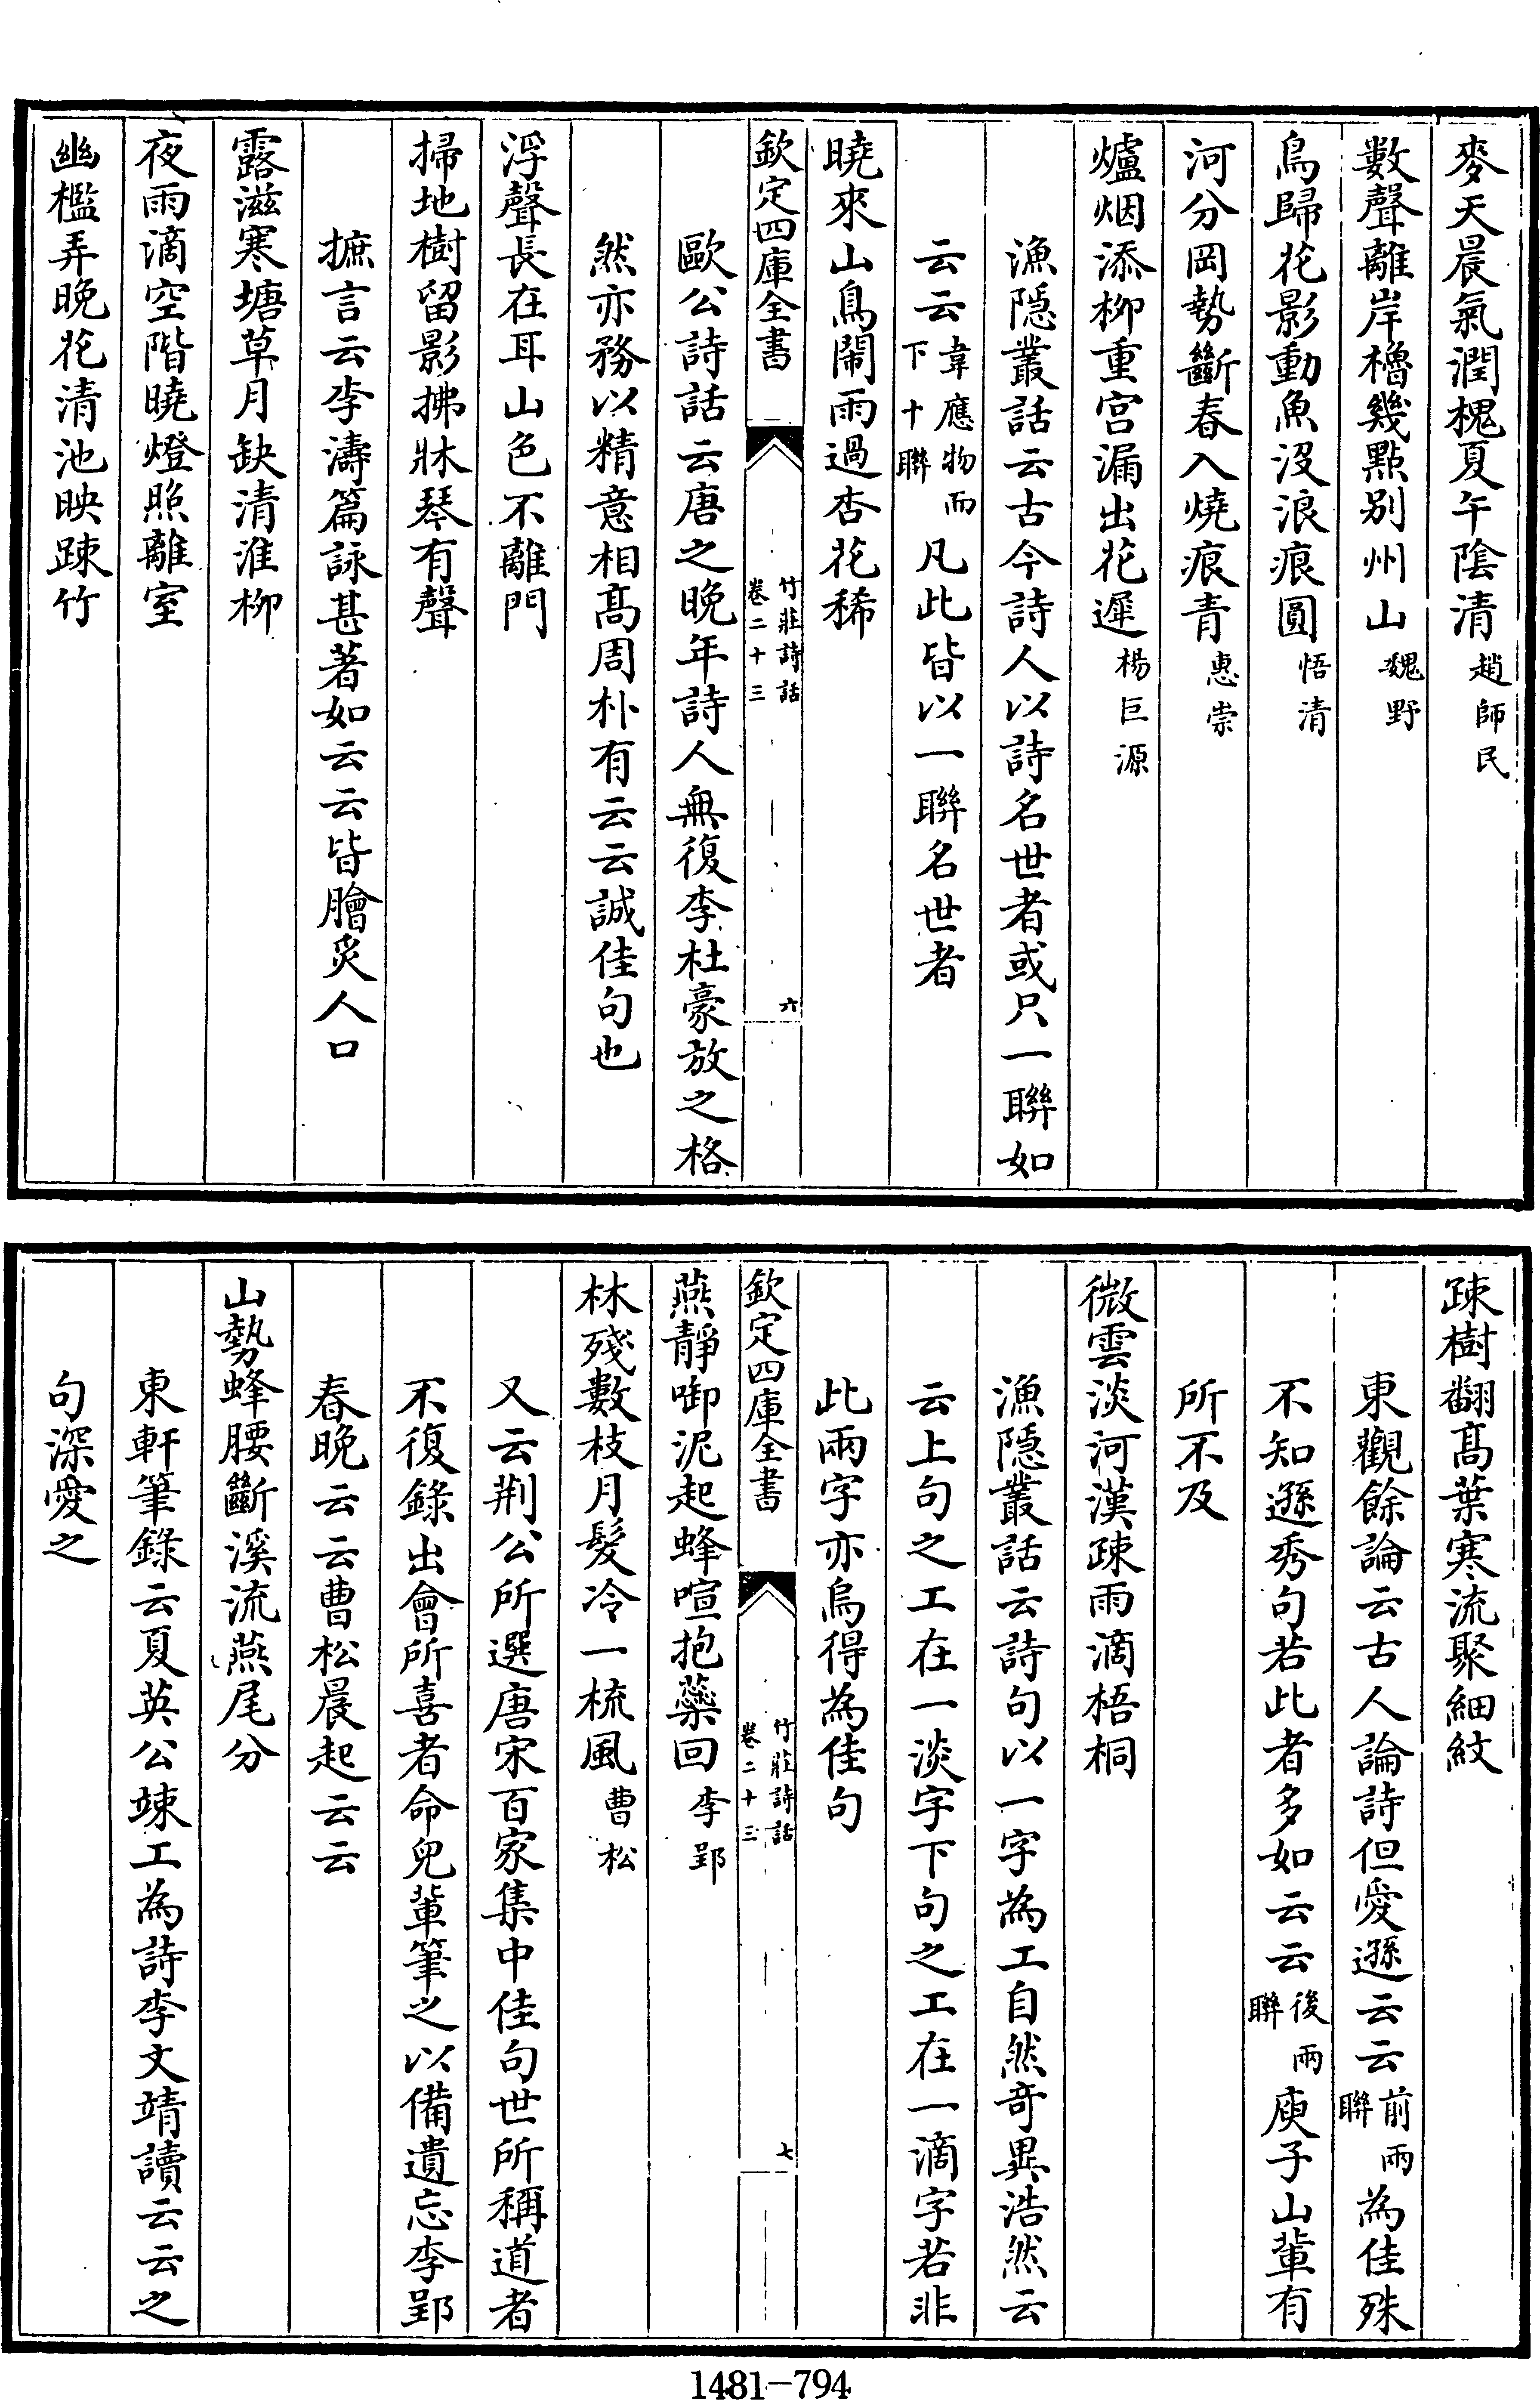 麥天晨氣潤槐夏午陰清趙師民
數聲離岸櫓幾點别州山魏野
鳥歸花影動魚沒浪痕圓悟清
河分岡勢斷春入燒痕青惠崇
爐烟添柳重宫漏出花遲楊巨源
漁隱叢話云古今詩人以詩名世者或只一聯如
云云韋應物而下十聯凡此皆以一聯名世者
曉來山鳥鬧雨過杏花稀
欽定四庫全書 竹莊詩話卷二十三 六
歐公詩話云唐之晚年詩人無復李杜豪放之格
然亦務以精意相髙周朴有云云誠佳句也
浮聲長在耳山色不離門
掃地樹留影拂牀琴有聲
摭言云李濤篇詠甚著如云云皆膾炙人口
露滋寒塘草月缺清淮柳
夜雨滴空階曉燈照離室
幽檻弄晚花清池映疎竹
疎樹翻髙葉寒流聚細紋
東觀餘論云古人論詩但愛遜云云前兩聯為佳殊
不知遜秀句若此者多如云云後兩聯庾子山輩有
所不及
微雲淡河漢疎雨滴梧桐
漁隱叢話云詩句以一字為工自然奇異浩然云
云上句之工在一淡字下句之工在一滴字若非
此兩字亦烏得為佳句
欽定四庫全書 竹莊詩話卷二十三 七
燕靜啣泥起蜂喧抱蘂回李郢
林殘數枝月髮冷一梳風曹松
又云荆公所選唐宋百家集中佳句世所稱道者
不復錄出會所喜者命兒輩筆之以備遺忘李郢
春晚云云曹松晨起云云
山勢蜂腰斷溪流燕尾分
東軒筆錄云夏英公竦工為詩李文靖讀云云之
句深愛之
1481-794